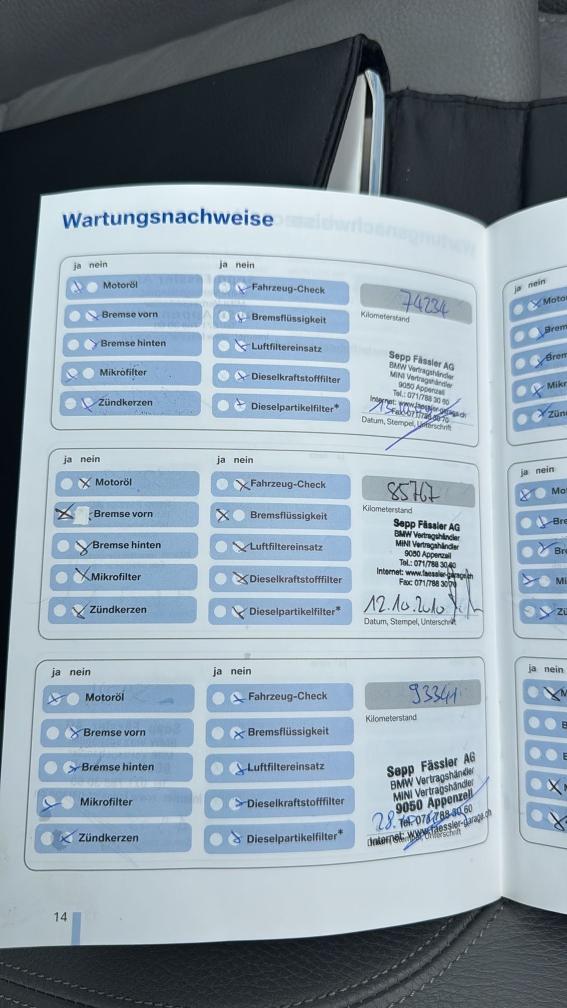 Wartungsnachweise
ja nein
ja nein
Motoröl
Fahrzeug-Check
74234
Bremse vorn
Bremsflüssigkeit
Kilometerstand
Bremse hinten
Luftfiltereinsatz
Mikrofilter
Dieselkraftstofffilter
Zündkerzen
Dieselpartikelfilter*
Sepp Fässler AG
BMW Vertragshändler
MINI Vertragshändler
9050 Appenzell
Tel.: 071/788 30 60
Internet: www.faessler-garage.ch
Fax: 071/788 30 70
Datum, Stempel, Unterschrift
ja nein
ja nein
Motoröl
Fahrzeug-Check
85767
Bremse vorn
Bremsflüssigkeit
Kilometerstand
Bremse hinten
Luftfiltereinsatz
Mikrofilter
Dieselkraftstofffilter
Zündkerzen
Dieselpartikelfilter*
Sepp Fässler AG
BMW Vertragshändler
MINI Vertragshändler
9050 Appenzell
Tel.: 071/788 30 60
Internet: www.faessler-garage.ch
Fax: 071/788 30 70
12.10.2010
Datum, Stempel, Unterschrift
ja nein
ja nein
Motoröl
Fahrzeug-Check
93341
Bremse vorn
Bremsflüssigkeit
Kilometerstand
Bremse hinten
Luftfiltereinsatz
Mikrofilter
Dieselkraftstofffilter
Zündkerzen
Dieselpartikelfilter*
Sepp Fässler AG
BMW Vertragshändler
MINI Vertragshändler
9050 Appenzell
28.
Tel. 071/788 30 60
Internet: www.faessler-garage.ch
14
ja nein
Moto
Brem
Brem
Mikr
Zün
ja nein
Mo
Bre
Br
Mi
Zü
ja nein
M
B